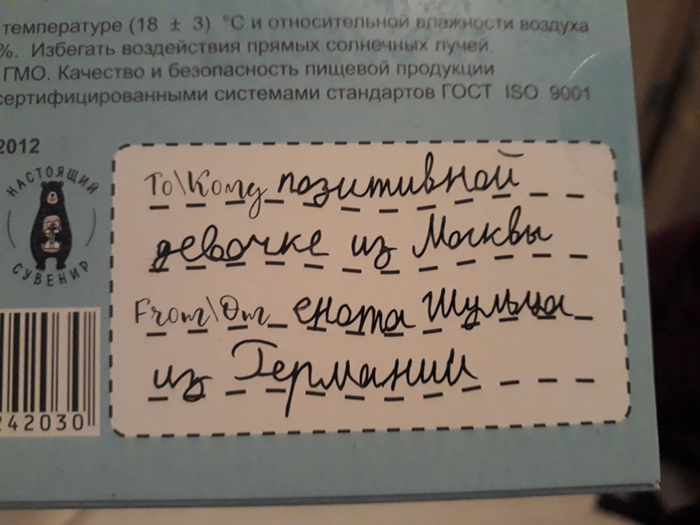 температуре (18 ± 3) °С и относительной влажности воздуха
%. Избегать воздействия прямых солнечных лучей.
ГМО. Качество и безопасность пищевой продукции
сертифицированными системами стандартов ГОСТ ISO 9001
2012
НАСТОЯЩИЙ
СУВЕНИР
To\Кому позитивной
девочке из Москвы
From\От енота Шульца
из Германии
242030